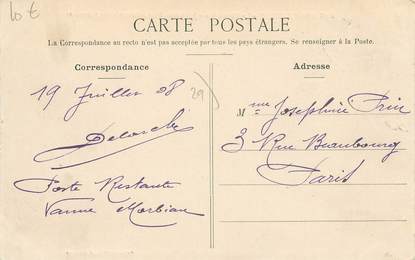 10 €
CARTE POSTALE
La Correspondance au recto n'est pas acceptée par tous les pays étrangers. Se renseigner à la Poste.
Correspondance
19 Juillet 08
29)
Poste Restante
Vanne Morbian
Adresse
Mme Josephine
3 Rue Beaubourg
Paris